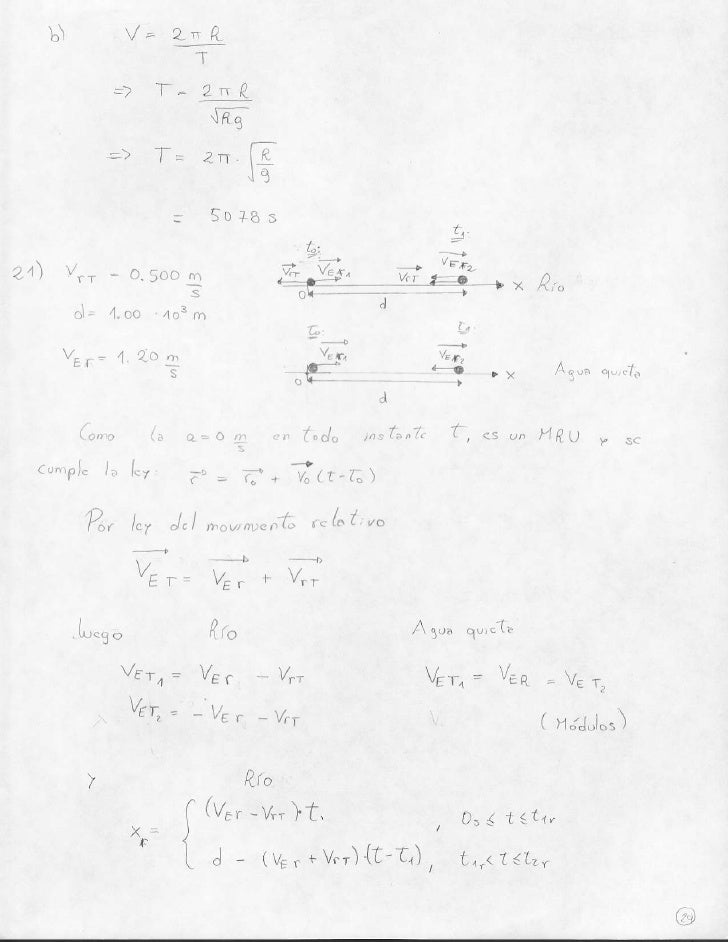 b) V = 2πR / T
=> T = 2πR / √Rg
=> T = 2π · √(R/g)
= 5078 s
21) VrT = 0.500 m/s
d = 1.00 · 10³ m
VEr = 1.20 m/s
t₀: t₁:
VrT VEr₁ VrT VEr₂
0 d x Río
t₀: t₁:
VEr₁ VEr₂
0 d x Agua quieta
Como la a = 0 m/s en todo instante t, es un MRU y se
cumple la ley: r = r₀ + V₀ (t - t₀)
Por ley del movimiento relativo
VET = VEr + VrT
luego Río Agua quieta
VET₁ = VEr - VrT VET₁ = VER = VET₂
VET₂ = -VEr - VrT (Módulos)
y Río
xr = { (VEr - VrT)·t. , 0s ≤ t ≤ t1r
d - (VEr + VrT)·(t - t1), t1r < t ≤ t2r
24